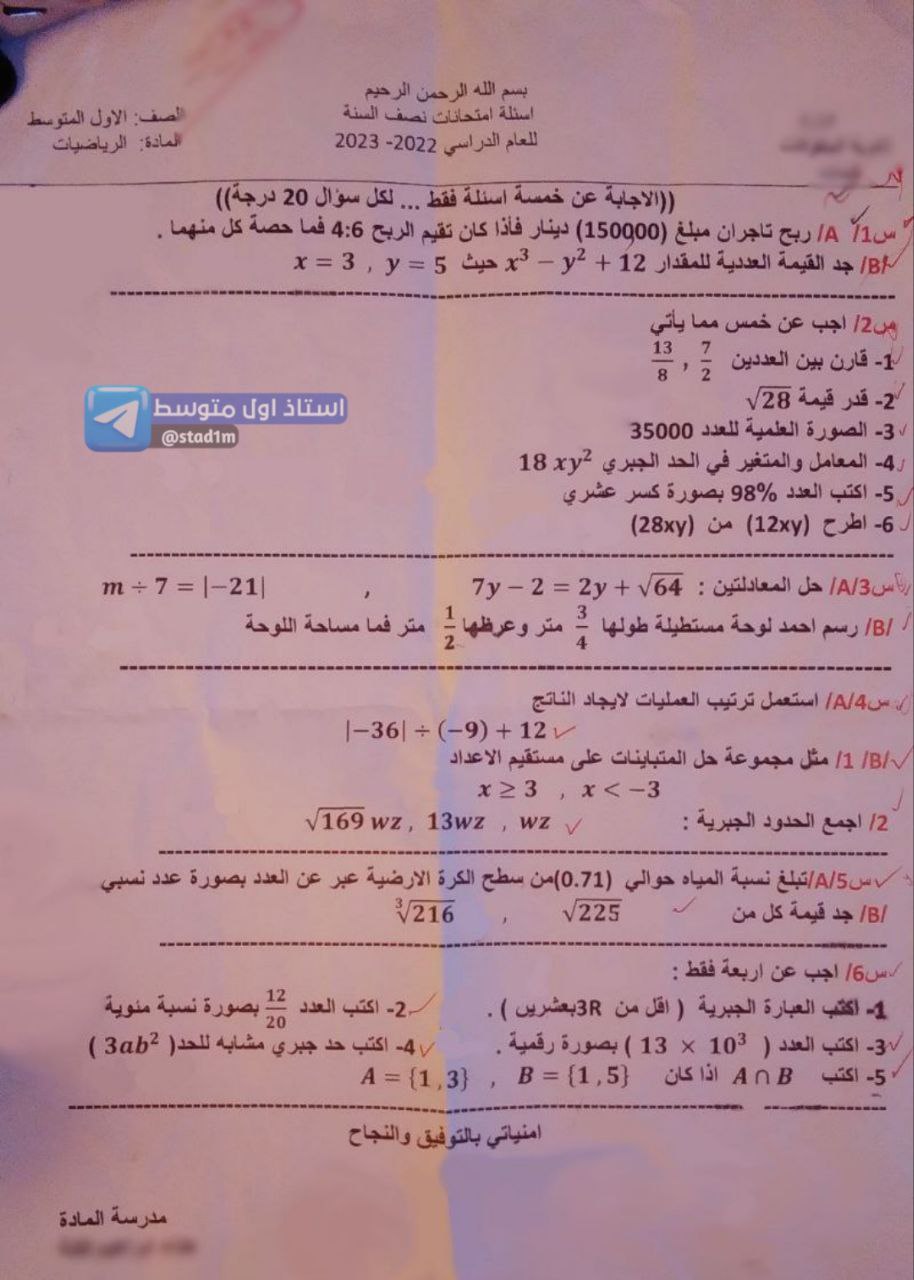 بسم الله الرحمن الرحيم
اسئلة امتحانات نصف السنة
للعام الدراسي 2022- 2023
الصف: الاول المتوسط
المادة: الرياضيات
((الاجابة عن خمسة اسئلة فقط ... لكل سؤال 20 درجة))
س1/ A/ ربح تاجران مبلغ (150000) دينار فأذا كان تقيم الربح 4:6 فما حصة كل منهما .
B/ جد القيمة العددية للمقدار x³ − y² + 12 حيث x = 3 , y = 5
س2/ اجب عن خمس مما يأتي
1- قارن بين العددين 7/2 , 13/8
2- قدر قيمة √28
3- الصورة العلمية للعدد 35000
4- المعامل والمتغير في الحد الجبري 18 xy²
5- اكتب العدد 98% بصورة كسر عشري
6- اطرح (12xy) من (28xy)
س3/A/ حل المعادلتين : 7y − 2 = 2y + √64 , m ÷ 7 = |−21|
B/ رسم احمد لوحة مستطيلة طولها 3/4 متر وعرظها 1/2 متر فما مساحة اللوحة
س4/A/ استعمل ترتيب العمليات لايجاد الناتج
|−36| ÷ (−9) + 12
B/ 1/ مثل مجموعة حل المتباينات على مستقيم الاعداد
x ≥ 3 , x < −3
2/ اجمع الحدود الجبرية : √169 wz , 13wz , wz
س5/A/تبلغ نسبة المياه حوالي (0.71)من سطح الكرة الارضية عبر عن العدد بصورة عدد نسبي
B/ جد قيمة كل من √225 , ∛216
س6/ اجب عن اربعة فقط :
1- اكتب العبارة الجبرية ( اقل من 3R بعشرين ) . 2- اكتب العدد 12/20 بصورة نسبة مئوية
3- اكتب العدد ( 13 × 10³ ) بصورة رقمية . 4- اكتب حد جبري مشابه للحد( 3ab² )
5- اكتب A ∩ B اذا كان A = {1 , 3} , B = {1 , 5}
امنياتي بالتوفيق والنجاح
مدرسة المادة
استاذ اول متوسط
@stad1m